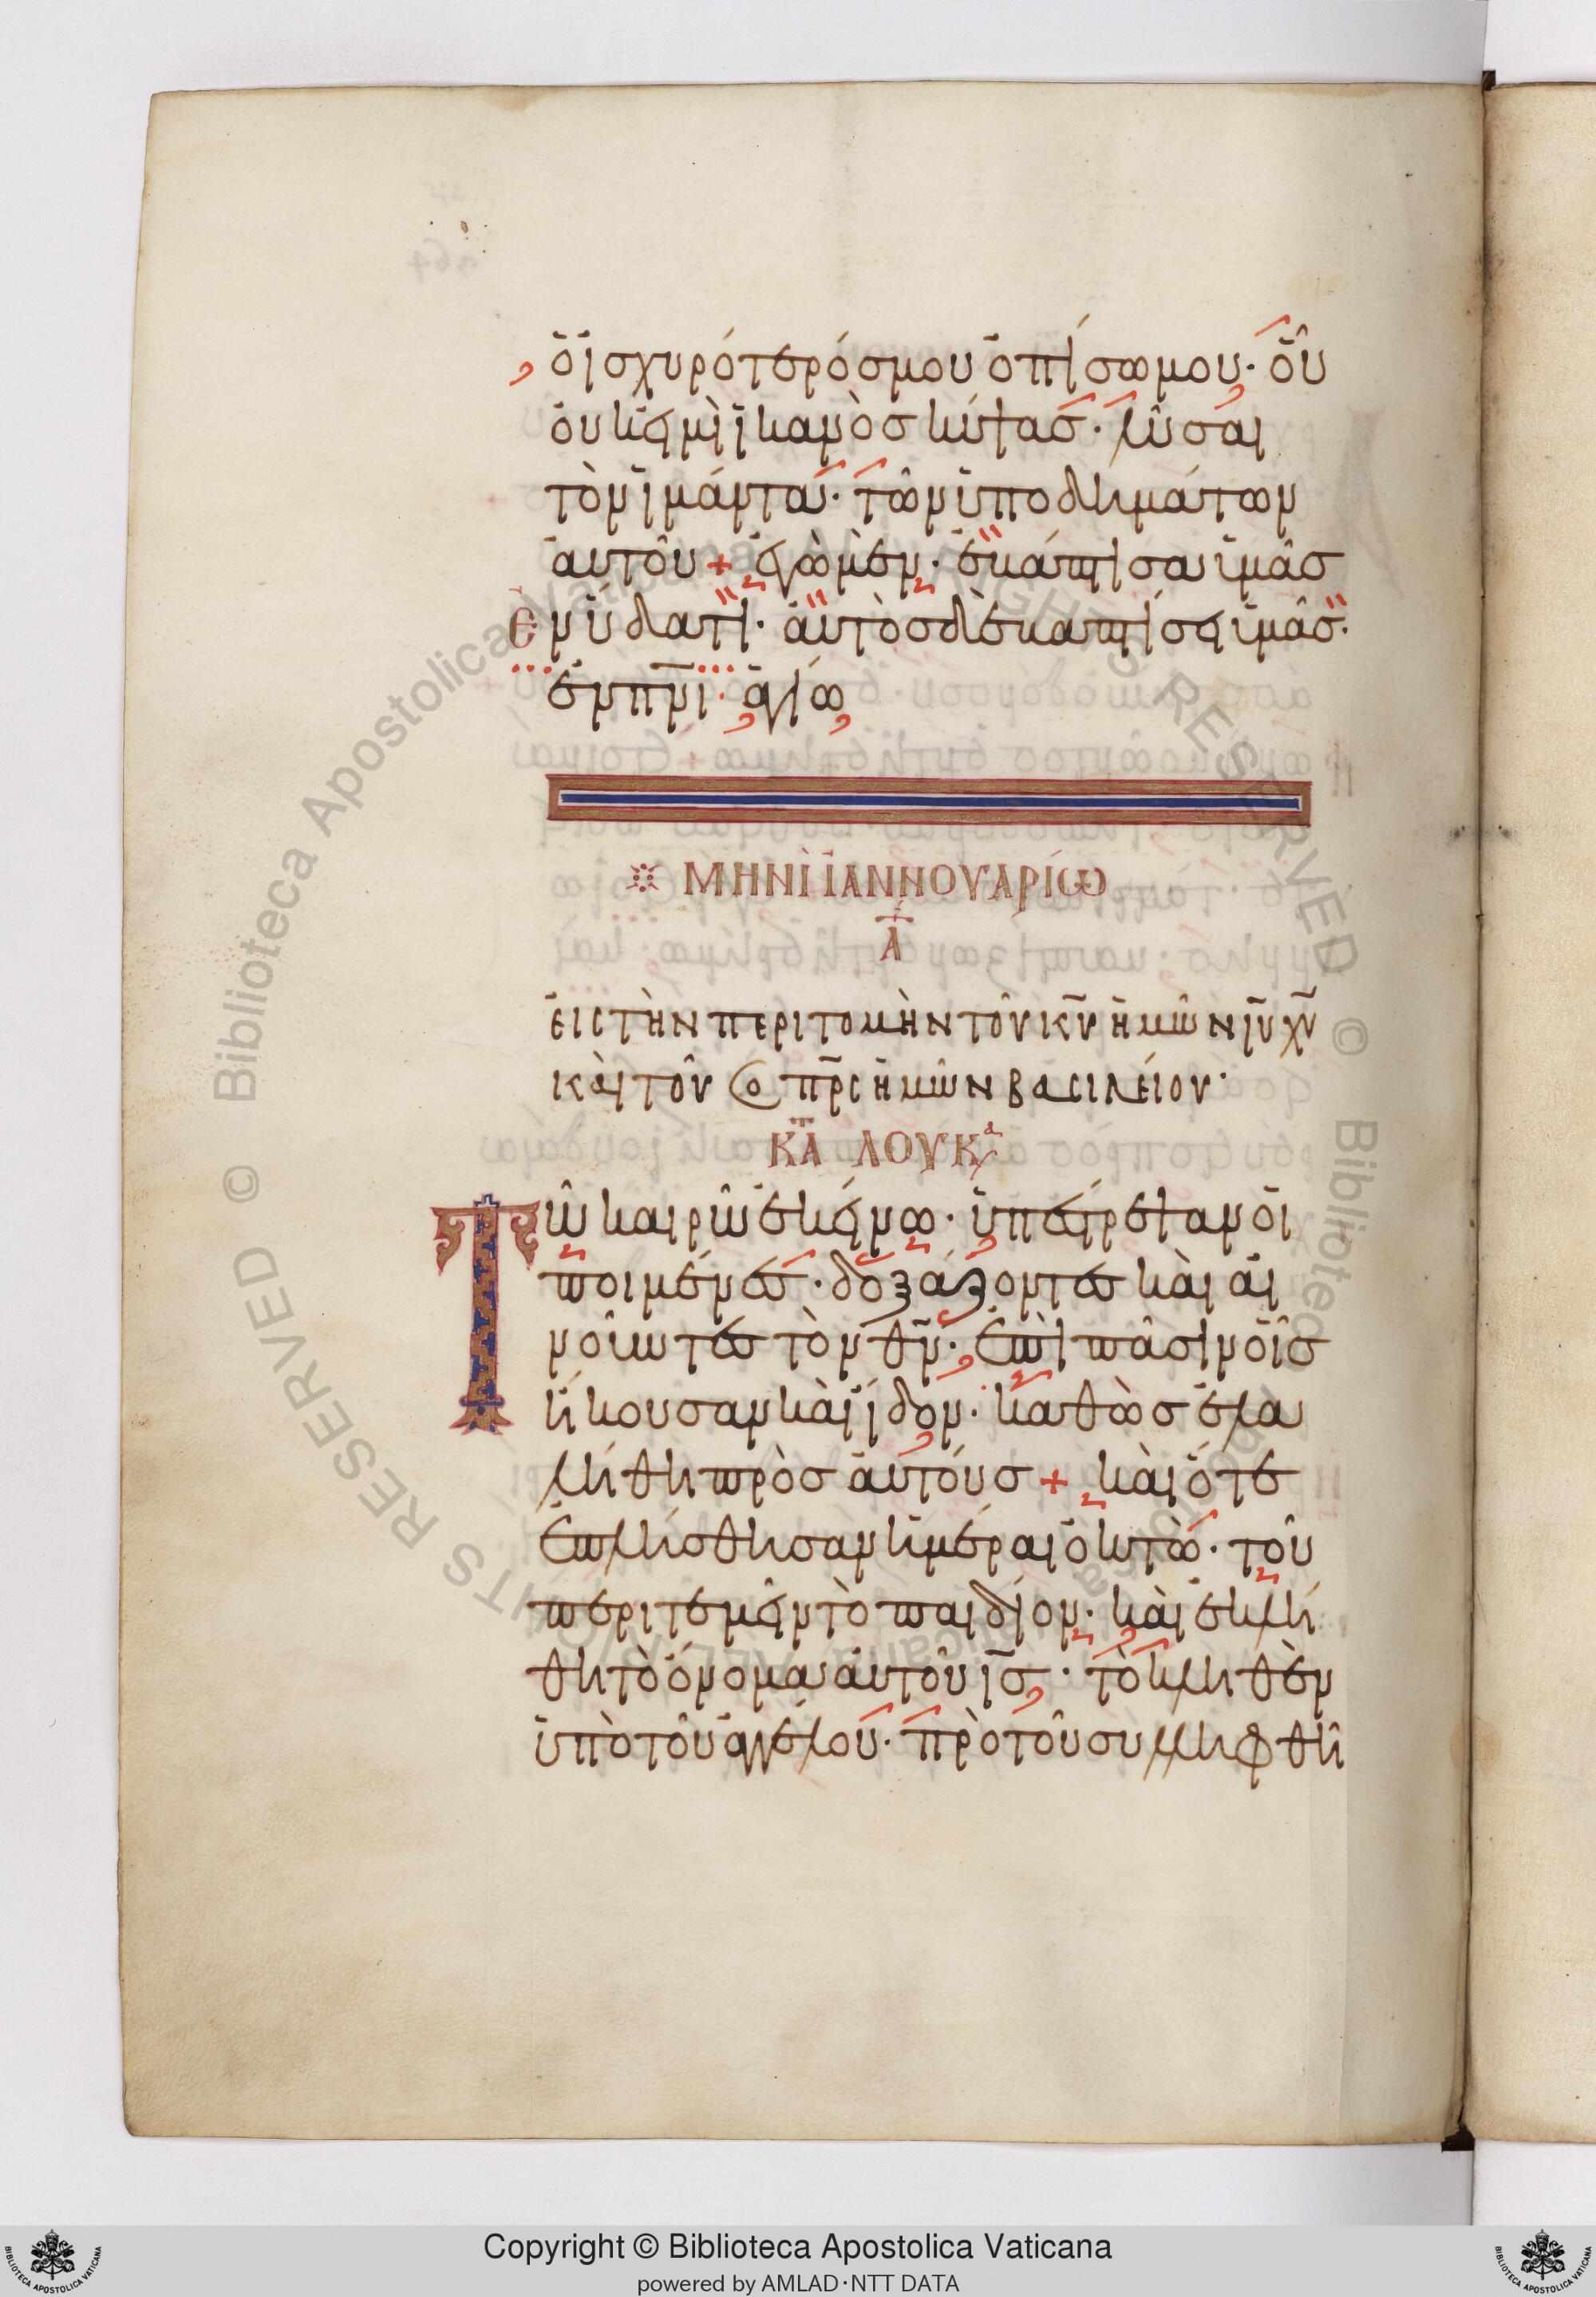 ὁ ἰσχυρότερός μου ὀπίσω μου· οὗ
οὐκ εἰμὶ ἱκανὸς κύψας· λῦσαι
τὸν ἱμάντα· τῶν ὑποδημάτων
αὐτοῦ + ἐγὼ μὲν· ἐβάπτισα ὑμᾶς
ἐν ὕδατι· αὐτὸς δὲ βαπτίσει ὑμᾶς·
ἐν πν̅ι ἁγίω
ΜΗΝῚ ἸΑΝΝΟΥΑΡΊΩ
Α
εἰς τὴν περιτομὴν τοῦ κ̅υ ἡμῶν ι̅υ χ̅υ
καὶ τοῦ π̅ρς ἡμῶν βασιλείου·
Κ̅Α ΛΟΥΚ
Τῶ καιρῶ ἐκείνω· ὑπέστρεψαν οἱ
ποιμένες· δοξάζοντες καὶ αἰ
νοῦντες τὸν θ̅ν· ἐπὶ πᾶσιν οἷς
ἤκουσαν καὶ ἴδον· καθὼς ἐλα
λήθη πρὸς αὐτούς + καὶ ὅτε
ἐπλήσθησαν ἡμέραι ὀκτὼ· τοῦ
περιτεμεῖν τὸ παιδίον· καὶ ἐκλή
θη τὸ ὄνομα αὐτοῦ ι̅ς· τὸ κληθὲν
ὑπὸ τοῦ ἀγγέλου· πρὸ τοῦ συλληφθῆ
Copyright © Biblioteca Apostolica Vaticana
powered by AMLAD·NTT DATA